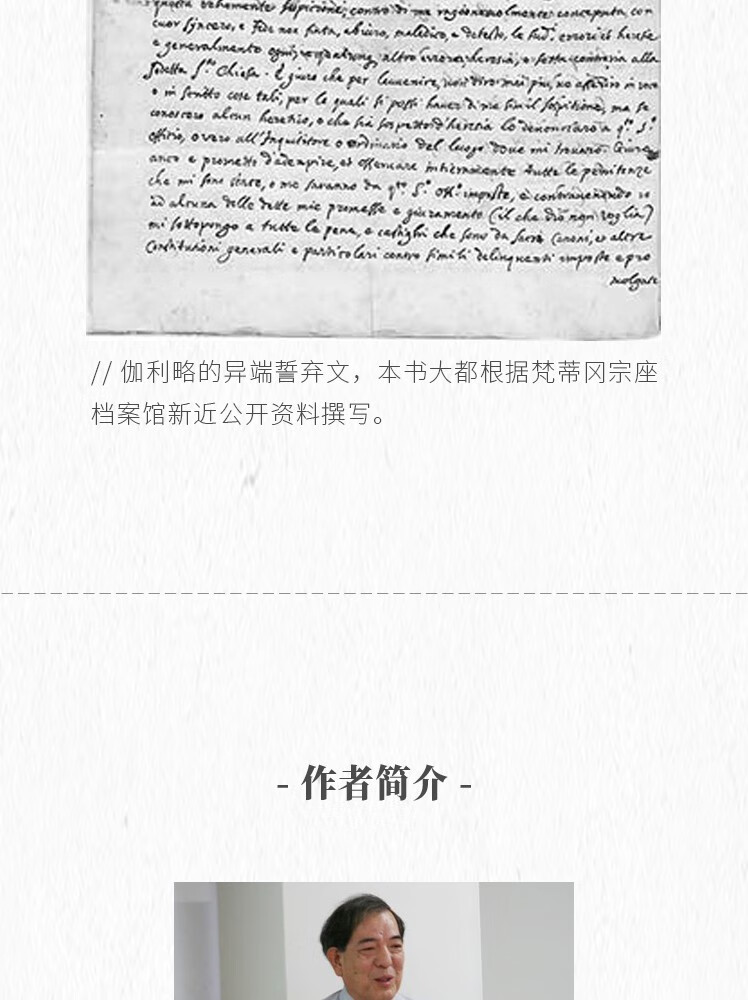 vehemente contro di me ragionevolmente conceputa, con
cuor sincero, e fede non finta, abiuro, maledico, e detesto, le errori et heresie
e generalmente altro errore, heresia, e setta contraria alla
S.ta Chiesa. E giuro che per l'avvenire, non dirò mai più, in voce
o in scritto cose tali, per le quali si possi haver di me simil sospitione, ma se
conoscero alcun heretico, o che sia sospetto d'heresia lo denontiarò a q.to S.to
Offitio, o vero all'Inquisitore o ordinario del luogo dove mi trovarò. Giuro
anco e prometto d'adempire, et osservare intieramente tutte le penitenze
che mi sono state, o me saranno da q.to S.to Off.o imposte, e contravenendo io
ad alcuna delle dette mie promesse e giuramento (il che dio non voglia)
mi sottopongo a tutte le pene, e castighi che sono da sacri Canoni, et altre
Constitutioni generali e particolari contro simili delinquenti imposte e pro
molgate
// 伽利略的异端誓弃文，本书大都根据梵蒂冈宗座
档案馆新近公开资料撰写。
- 作者简介 -